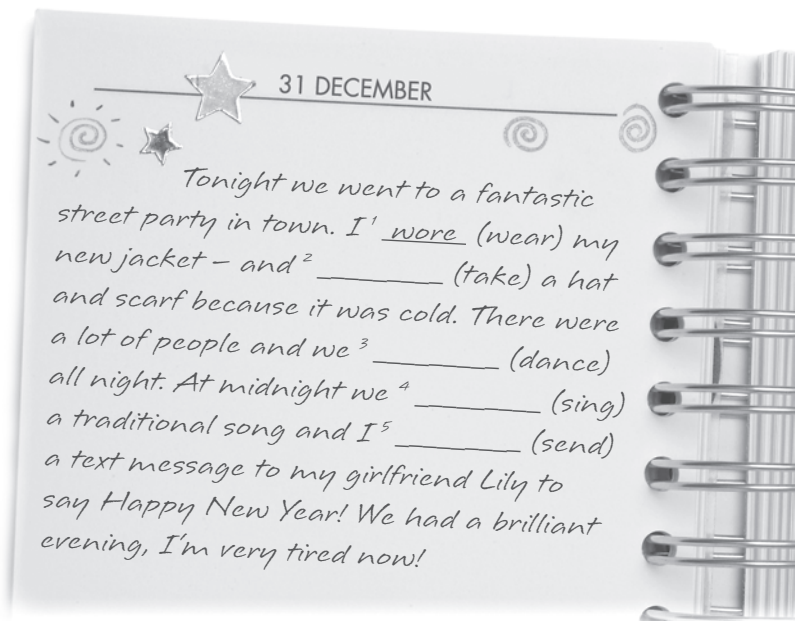 31 DECEMBER
Tonight we went to a fantastic
street party in town. I 1 wore (wear) my
new jacket – and 2 __________ (take) a hat
and scarf because it was cold. There were
a lot of people and we 3 __________ (dance)
all night. At midnight we 4 __________ (sing)
a traditional song and I 5 __________ (send)
a text message to my girlfriend Lily to
say Happy New Year! We had a brilliant
evening, I'm very tired now!